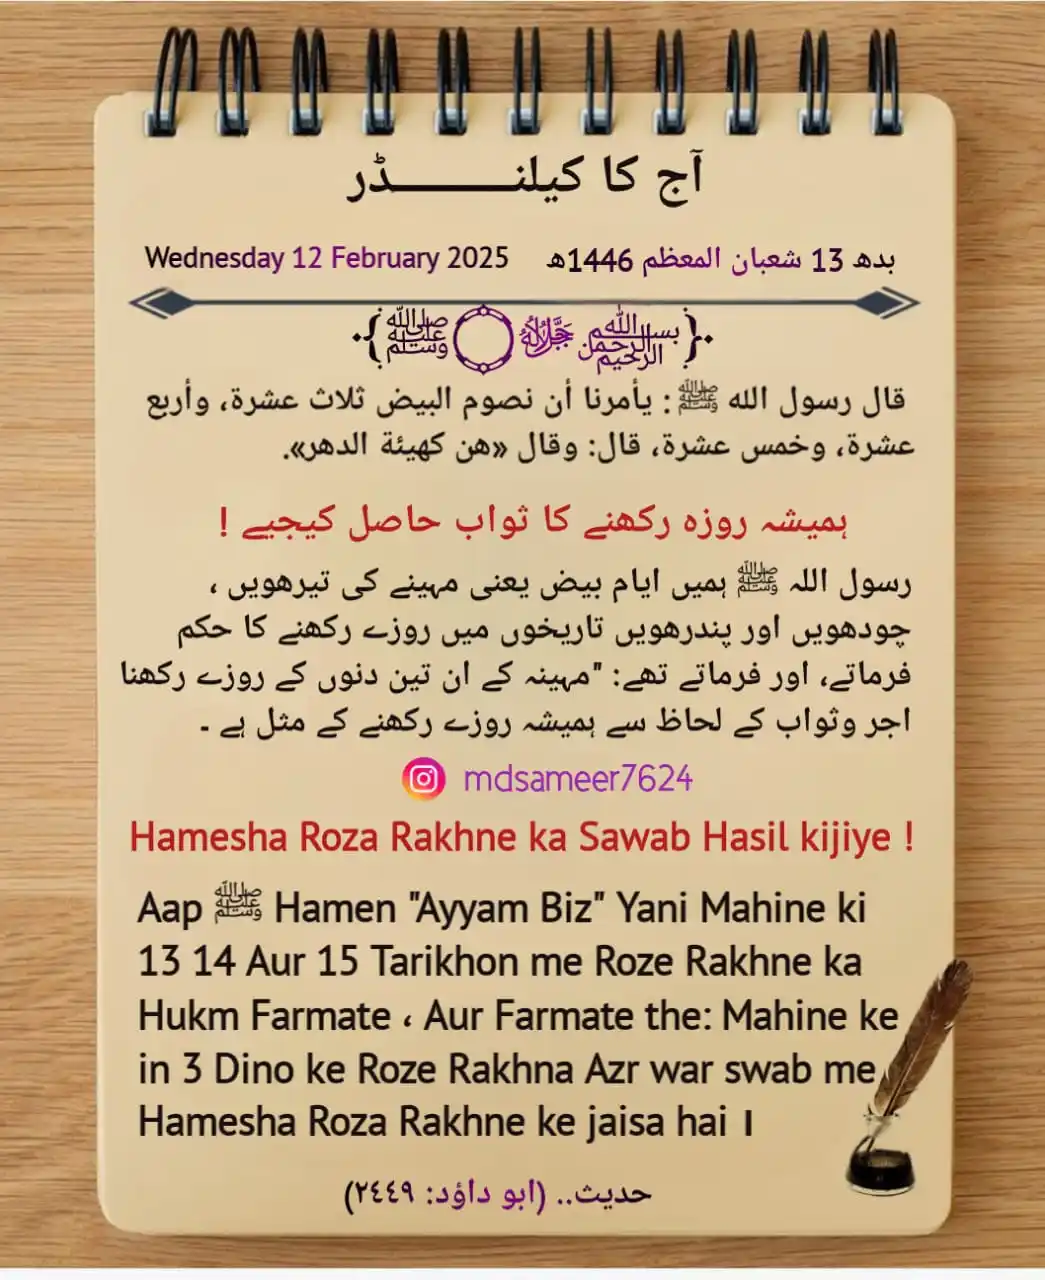 آج کا کیلنـــــــــڈر
Wednesday 12 February 2025 بدھ 13 شعبان المعظم 1446ھ
﷽ ﷻ ﷺ
قال رسول الله ﷺ: يأمرنا أن نصوم البيض ثلاث عشرة، وأربع
عشرة، وخمس عشرة، قال: وقال «هن كهيئة الدهر».
ہمیشہ روزہ رکھنے کا ثواب حاصل کیجیے !
رسول اللہ ﷺ ہمیں ایام بیض یعنی مہینے کی تیرھویں ،
چودھویں اور پندرھویں تاریخوں میں روزے رکھنے کا حکم
فرماتے، اور فرماتے تھے: "مہینہ کے ان تین دنوں کے روزے رکھنا
اجر وثواب کے لحاظ سے ہمیشہ روزے رکھنے کے مثل ہے ۔
mdsameer7624
Hamesha Roza Rakhne ka Sawab Hasil kijiye !
Aap ﷺ Hamen "Ayyam Biz" Yani Mahine ki
13 14 Aur 15 Tarikhon me Roze Rakhne ka
Hukm Farmate ، Aur Farmate the: Mahine ke
in 3 Dino ke Roze Rakhna Azr war swab me
Hamesha Roza Rakhne ke jaisa hai ।
حدیث.. (ابو داؤد: ٢٤٤٩)